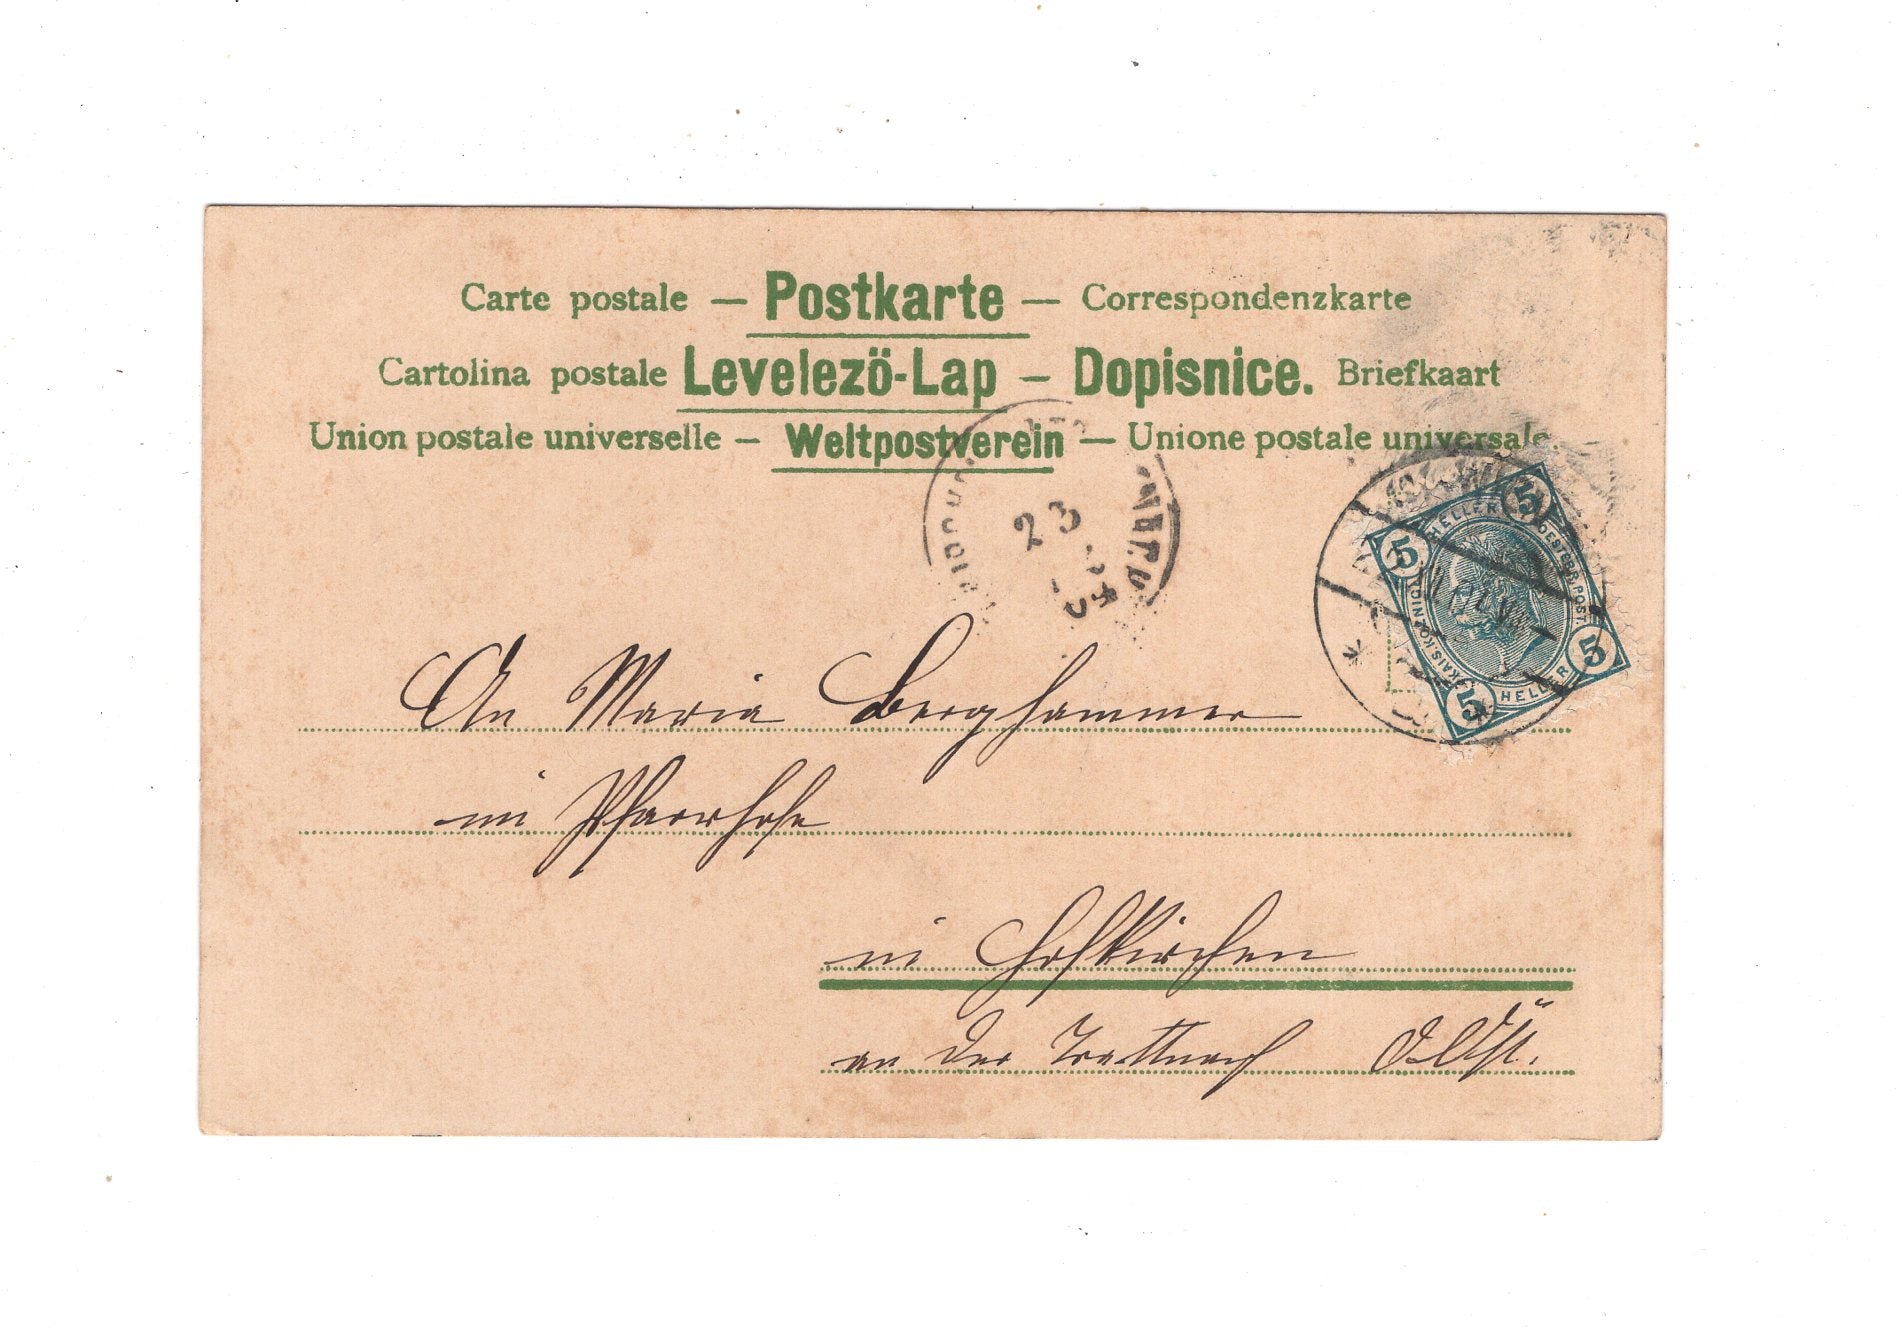 Carte postale — Postkarte — Correspondenzkarte
Cartolina postale Levelezö-Lap — Dopisnice. Briefkaart
Union postale universelle — Weltpostverein — Unione postale universale.
23
5 HELLER 5
KAIS. KÖNIGL. OESTERR. POST.
5 HELLER 5
An Maria Berghammer
im Pfarrhofe
in Hofkirchen
an der Trattnach O.Öst.